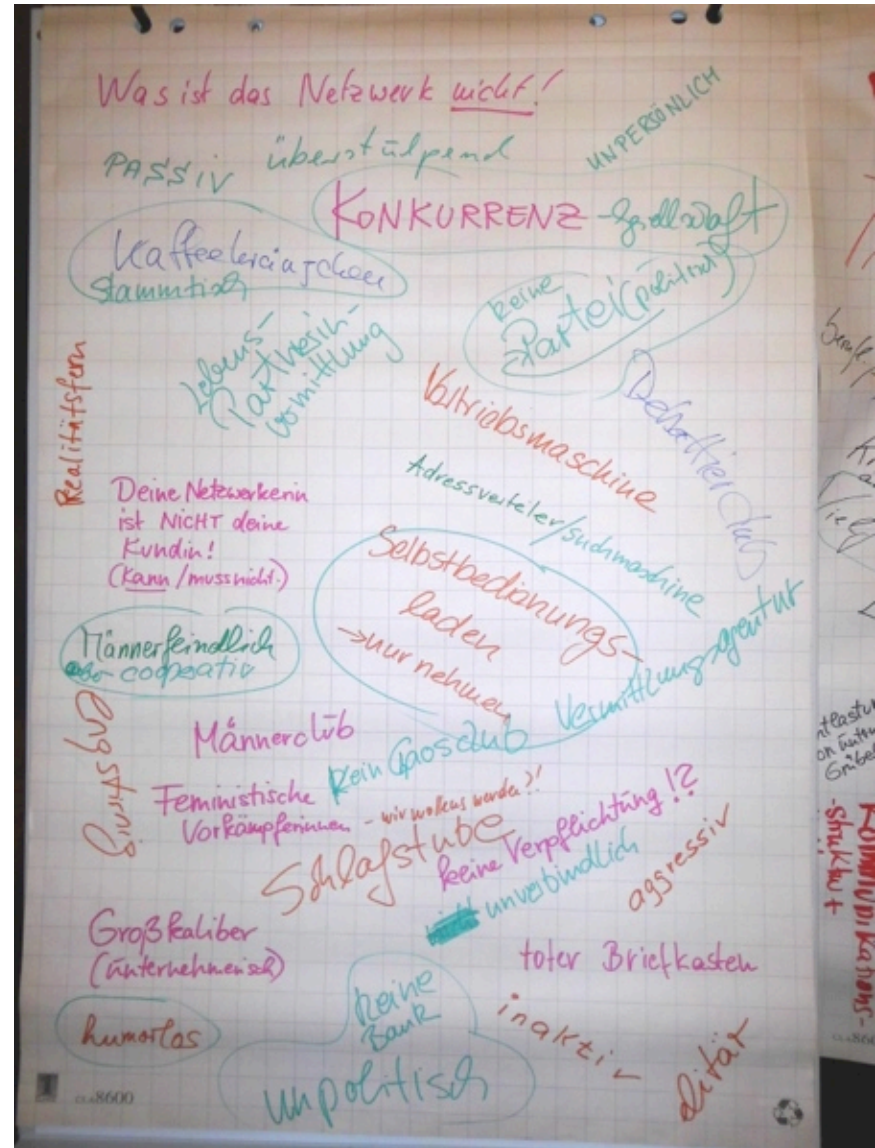 Was ist das Netzwerk nicht!
PASSiV
überstülpend
UNPERSÖNLICH
KONKURRENZ-Gesellschaft
Kaffeekränzchen
Stammtisch
keine
Partei (politisch)
Lebens-
Partnerin-
vermittlung
Debattierclub
Realitätsfern
Vertriebsmaschine
Adressverteiler/suchmaschine
Deine Netzwerkerin
ist NiCHT deine
Kundin!
(kann/muss nicht.)
Selbstbedienungs-
laden
→nur nehmen
Vermittlungsagentur
Männerfeindlich
cooperativ
Engstirnig
Männerclub
kein Chaosclub
Feministische
Vorkämpferinnen - wir wollens werden?!
Schlafstube
keine Verpflichtung!?
unverbindlich
aggressiv
Großkaliber
(unternehmerisch)
toter Briefkasten
humorlos
keine
Bank
unpolitisch
inaktiv
elitär
8600
-struktur